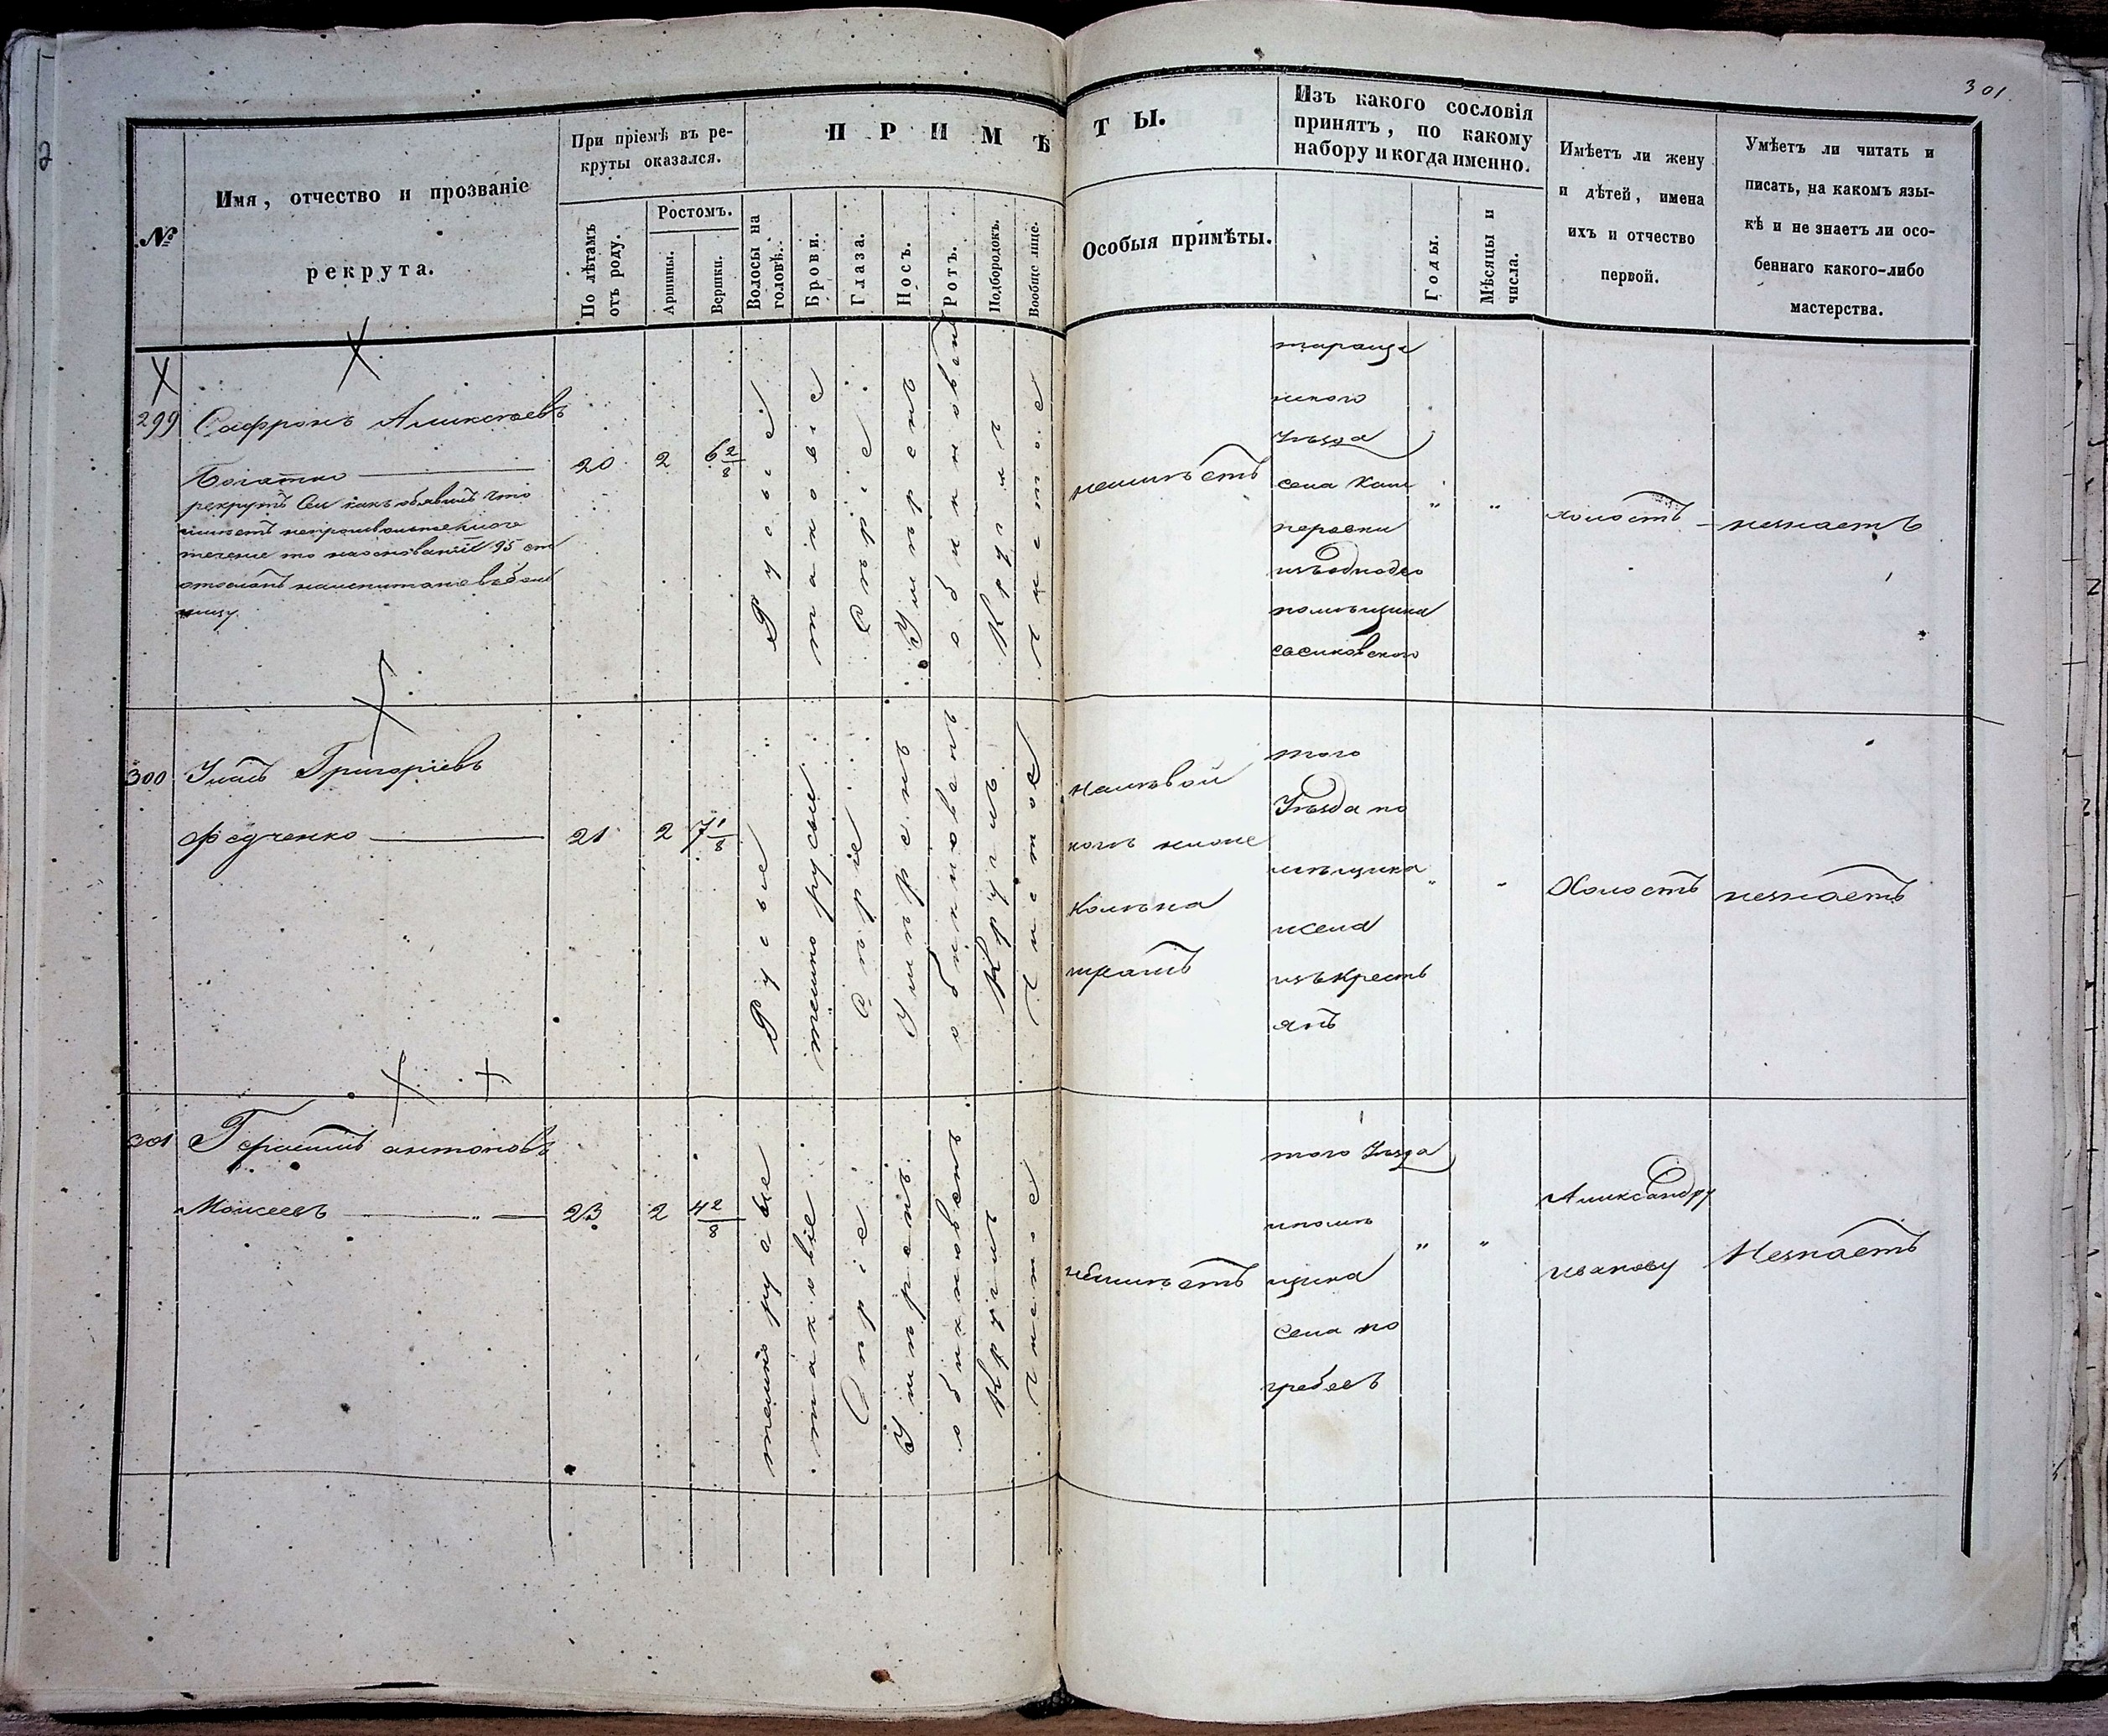 301.
№
Имя, отчество и прозваніе
рекрута.
При пріемѣ въ ре-
круты оказался.
По лѣтамъ
отъ роду.
Ростомъ.
Аршины.
Вершки.
ПРИМѢ
ТЫ.
Волосы на
головѣ.
Брови.
Глаза.
Носъ.
Ротъ.
Подбородокъ.
Вообще лице.
Особыя примѣты.
Изъ какого сословія
принятъ, по какому
набору и когда именно.
Годы.
Мѣсяцы и
числа.
Имѣетъ ли жену
и дѣтей, имена
ихъ и отчество
первой.
Умѣетъ ли читать и
писать, на какомъ язы-
кѣ и не знаетъ ли осо-
беннаго какого-либо
мастерства.
299
Сафронъ Аликсѣевъ
рекрутъ
что
течение
95 ст
20
2
6 2/8
Русые
таковіе
Сѣріе
Умѣренъ
обикновен
Кругл
Чистое
неимѣетъ
тараща
нского
Уѣзда
села
изъ
помѣщика
"
"
холостъ
незнаетъ
300
Григоріевъ
Федченко
21
2
7 1/8
Русые
темно русыи
Сѣріе
Умѣренъ
обикновенъ
Круглъ
Чистое
налѣвой
ногѣ
колѣна
того
Уѣзда по
мѣщика
изъ крестъ
янъ
"
Холостъ
незнаетъ
301
Герасимъ антоновъ
Моисеевъ
23
2
4 2/8
темно русавые
таковіе
Сѣріе
Умѣренъ
обикновенъ
Круглъ
Чистое
неимѣетъ
того Уѣзда
ипомѣ
щика
Села по
гребовъ
"
"
Алиександру
иванову
Незнаетъ